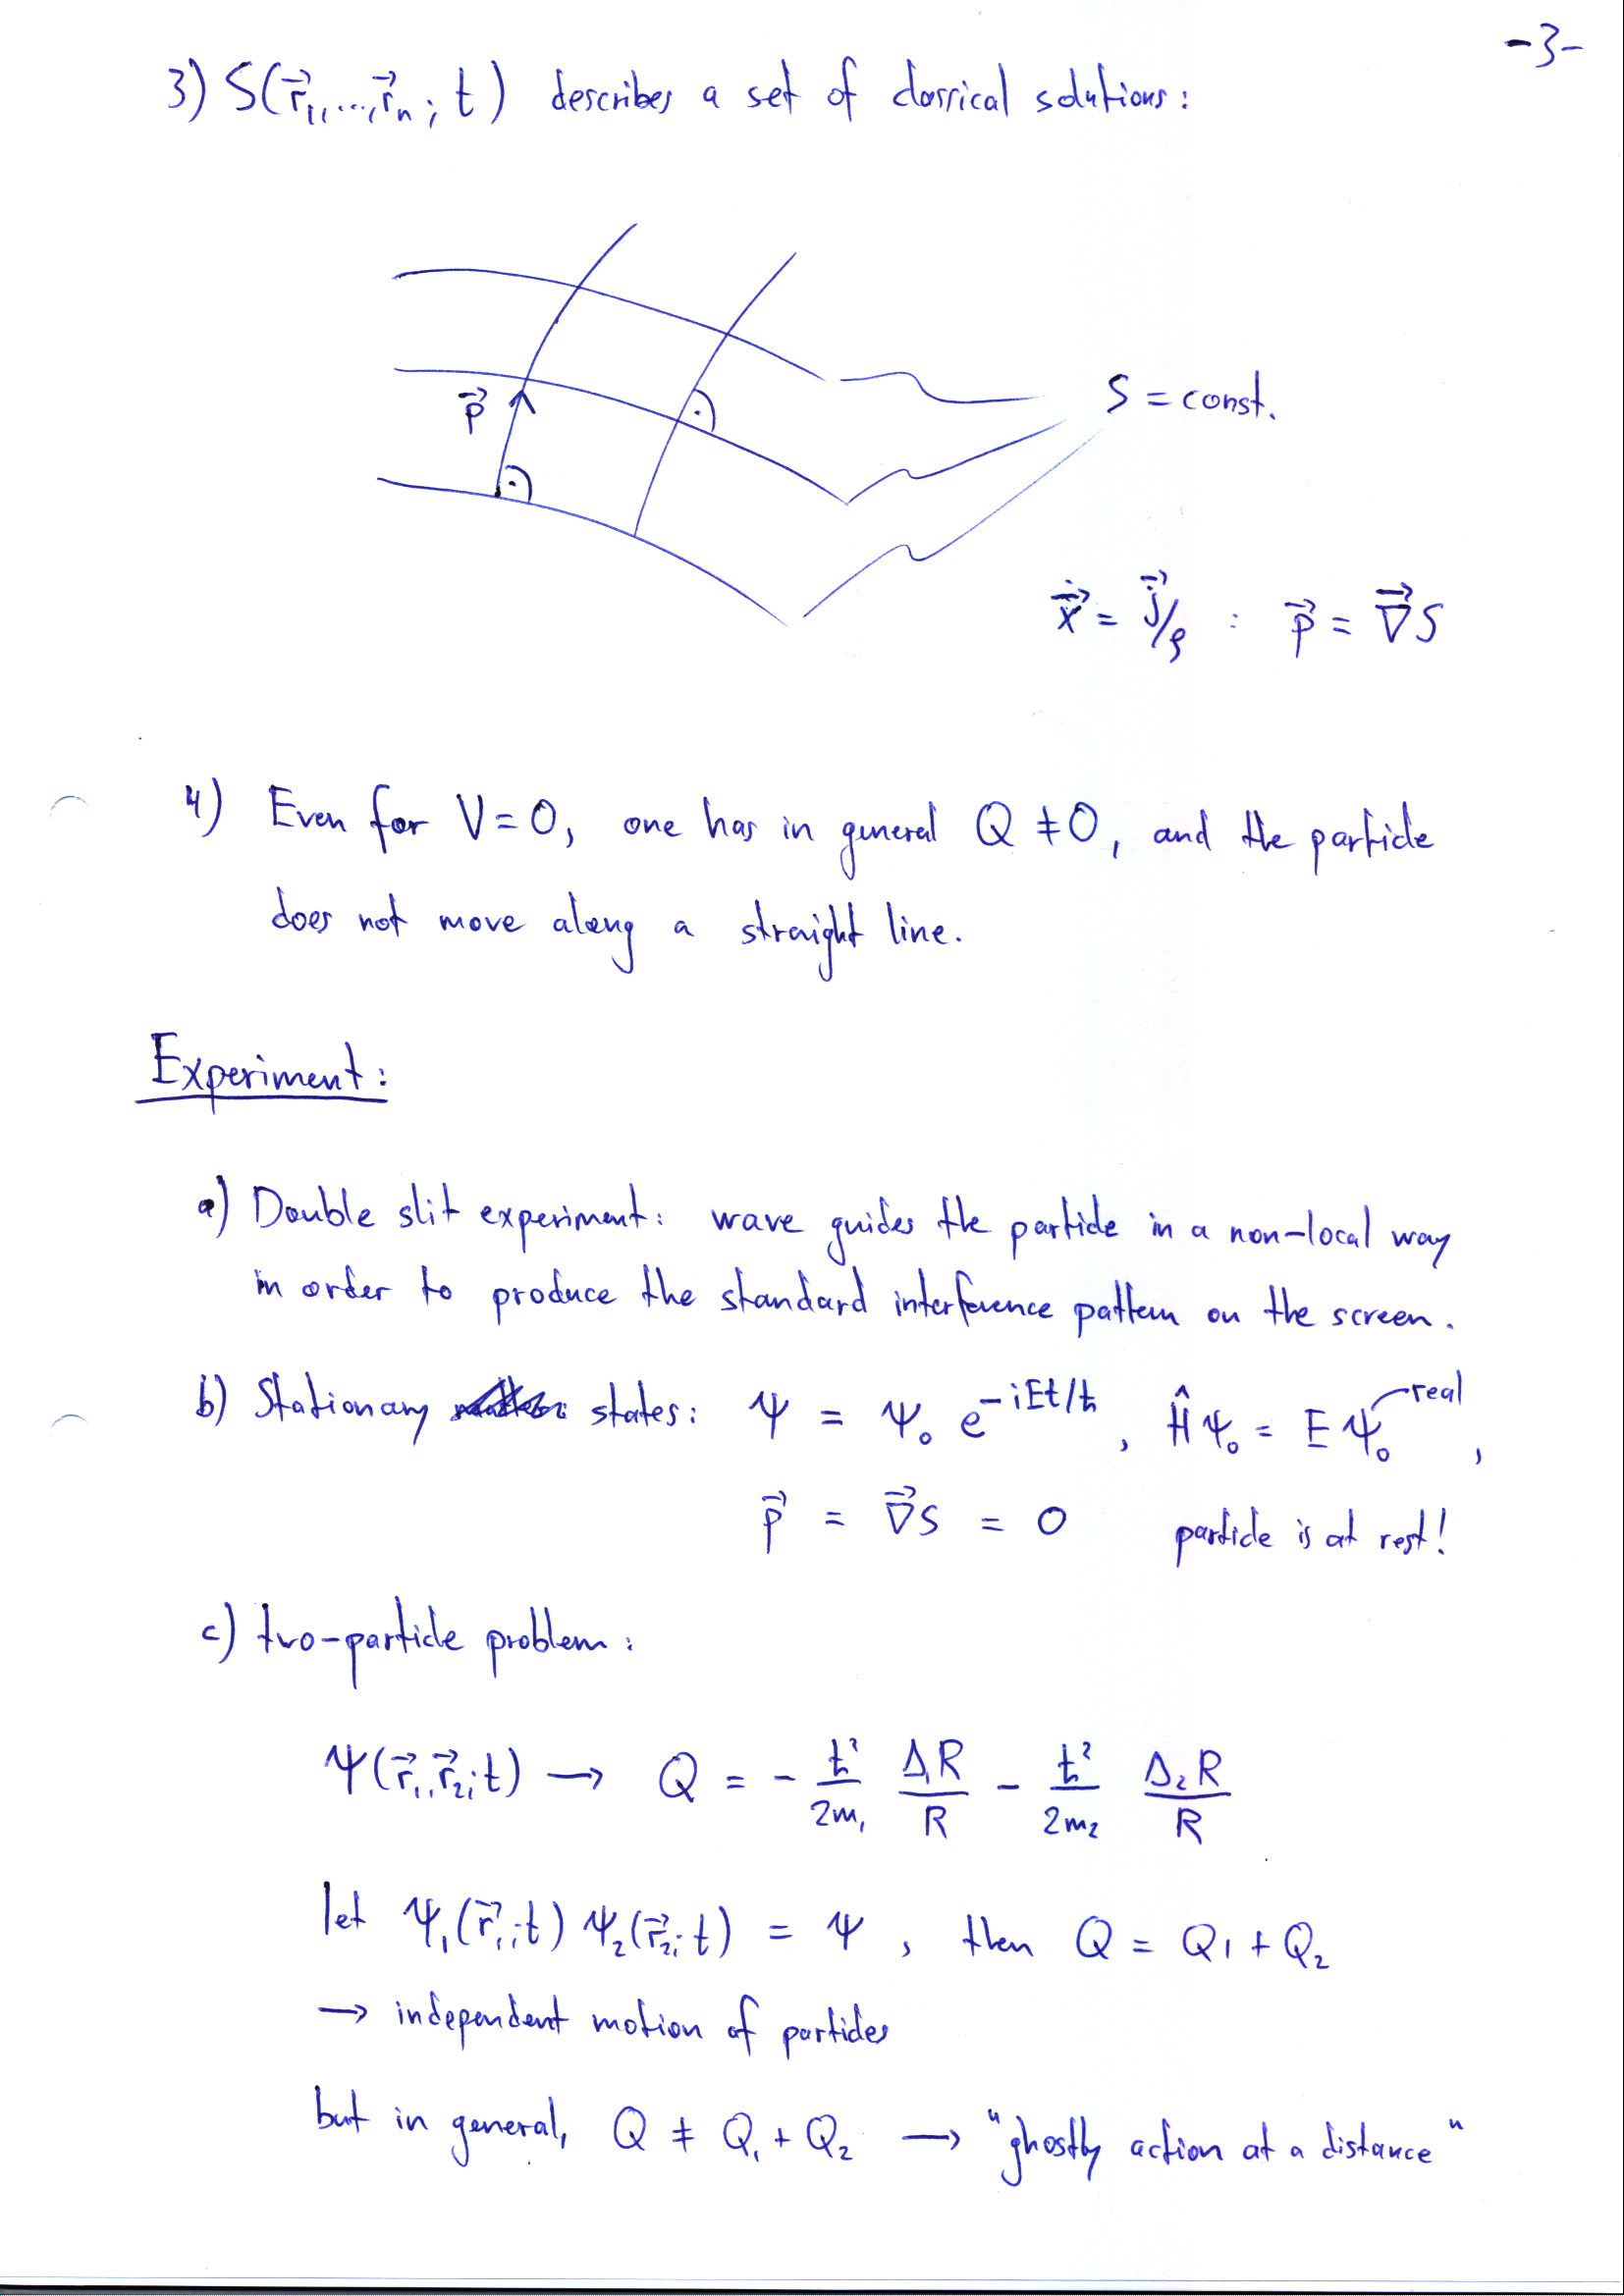 -3-
3) S(r⃗₁,...,r⃗ₙ; t) describes a set of classical solutions:
p⃗
S = const.
ẋ⃗ = j⃗/ρ : p⃗ = ∇⃗S
4) Even for V=0, one has in general Q ≠ 0, and the particle
does not move along a straight line.
Experiment:
a) Double slit experiment: wave guides the particle in a non-local way
in order to produce the standard interference pattern on the screen.
b) Stationary states: Ψ = Ψ₀ e^{-iEt/ħ}, ĤΨ₀ = EΨ₀, real
p⃗ = ∇⃗S = 0 particle is at rest!
c) two-particle problem:
Ψ(r⃗₁,r⃗₂;t) → Q = - ħ²/2m₁ Δ₁R/R - ħ²/2m₂ Δ₂R/R
let Ψ₁(r⃗₁;t) Ψ₂(r⃗₂;t) = Ψ, then Q = Q₁ + Q₂
→ independent motion of particles
but in general, Q ≠ Q₁ + Q₂ → "ghostly action at a distance"